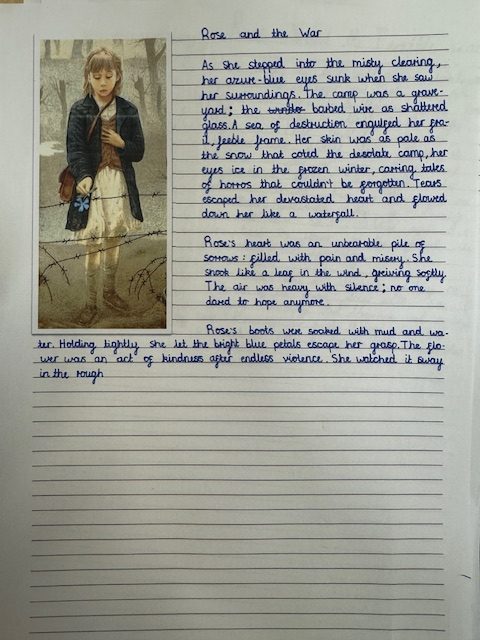 Rose and the War
As she stepped into the misty clearing,
her azure-blue eyes sunk when she saw
her surroundings. The camp was a grave-
yard; the barbed wire as shattered
glass. A sea of destruction engulfed her fra-
il, feeble frame. Her skin was as pale as
the snow that coted the desolate camp, her
eyes ice in the frozen winter, carring tales
of horros that couldn't be forgotten. Tears
escaped her devastated heart and flowed
down her like a waterfall.
Rose's heart was an unbearable pile of
sorrows: filled with pain and misery. She
shook like a leaf in the wind, greiving softly.
The air was heavy with silence; no one
dared to hope anymore.
Rose's boots were soaked with mud and wa-
ter. Holding tightly she let the bright blue petals escape her grasp. The flo-
wer was an act of kindness after endless violence. She watched it sway
in the rough